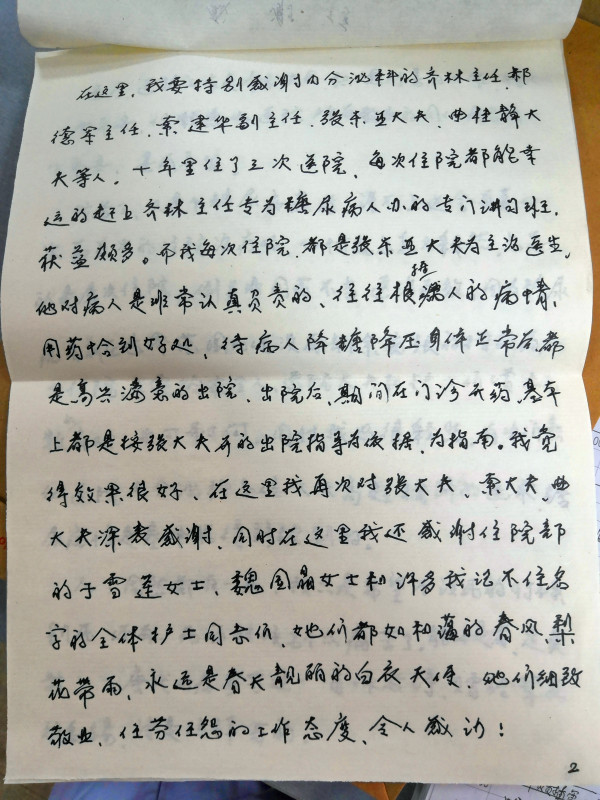 在这里，我要特别感谢内分泌科的齐林主任、郝
德军主任、索建华副主任、张东亚大夫、曲桂静大
夫等人。十年里住了三次医院，每次住院都能幸
运的赶上齐林主任专为糖尿病人办的专门讲习班，
获益颇多。而我每次住院，都是张东亚大夫为主治医生，
他对病人是非常认真负责的、往往根据病人的病情，
用药恰到好处，待病人降糖降压身体正常后，都
是高兴满意的出院，出院后，期间在门诊开药，基本
上都是按张大夫开的出院指导为依据，为指南。我觉
得效果很好，在这里我再次对张大夫、索大夫、曲
大夫深表感谢，同时在这里我还感谢住院部
的于雪莲女士、魏国晶女士和许多我记不住名
字的全体护士同志们，她们都如和蔼的春风，梨
花带雨，永远是春天靓丽的白衣天使，她们细致
敬业，任劳任怨的工作态度、令人感动！
2